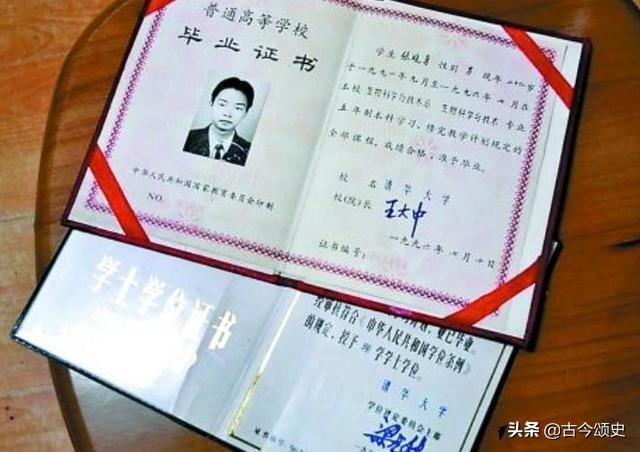 普通高等学校
毕业证书
中华人民共和国国家教育委员会印制
NO.
学生 张晓勇 性别 男 现年 二十四岁
于一九九一年九月至一九九六年七月在
本校 生物科学与技术系 生物科学与技术 专业
五年制本科学习,修完教学计划规定的
全部课程,成绩合格,准予毕业。
校 名 清华大学
校(院)长 王大中
证书编号:
一九九六年七月 日
学士学位证书
业已毕业,
经审核符合《中华人民共和国学位条例》
的规定,授予 理 学学士学位。
清华大学
学位评定委员会主席
证书编号
头条 @古今颂史